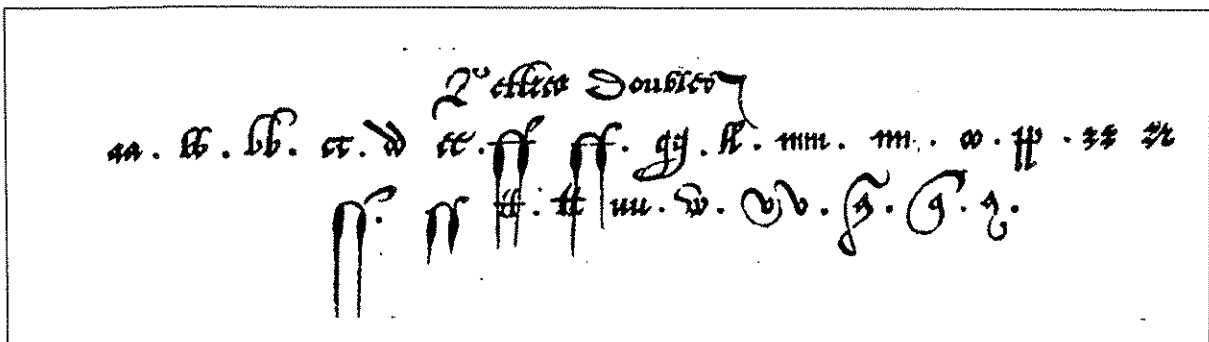 Lettres Doubles
aa . bb . bb . cc . dd ee . ff ff . gg . ll . mm . nn . oo . pp . rr rr
ss . ss tt . tt uu . w . vv .